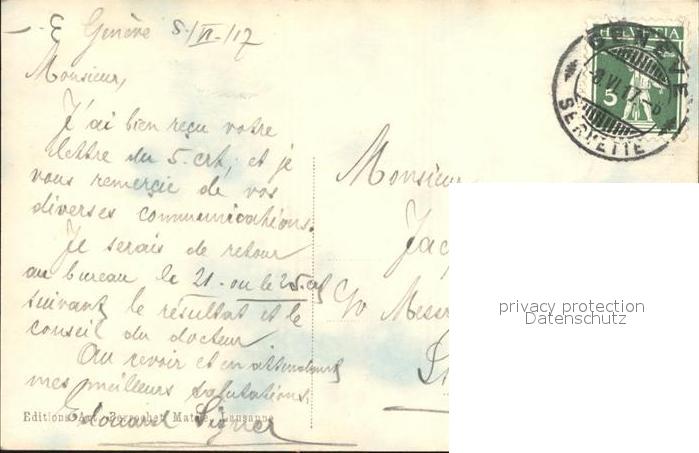 Genève 8/VI-/17
Monsieur,
J'ai bien reçu votre
lettre du 5. crt, et je
vous remercie de vos
diverses communications.
Je serais de retour
au bureau le 21 - ou le 25. crt
suivant le résultat et le
conseil du docteur
Au revoir et en attendant
mes meilleurs salutations.
Edouard
Editions Art. Perrochet Matile, Lausanne
HELVETIA
5
GENÈVE
-8.VI.17.-8
SERVETTE
Monsieur
Jacq
c/o Messr
privacy protection
Datenschutz